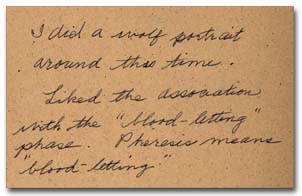 I did a wolf portrait
around this time.
Liked the association
with the "blood-letting"
phase. Pheresis means
"blood-letting."